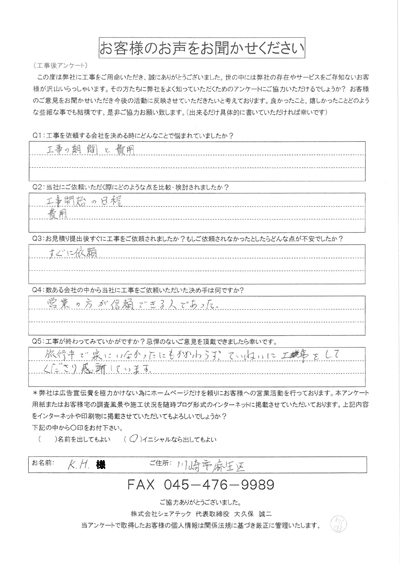 お客様のお声をお聞かせください
（工事後アンケート）
この度は弊社に工事をご用命いただき、誠にありがとうございました。世の中には弊社の存在やサービスをご存知ないお客
様が沢山いらっしゃいます。その方たちに弊社をよく知っていただくためのアンケートにご協力いただけるでしょうか？ お客様
のご意見をお聞かせいただき今後の活動に反映させていただきたいと考えております。良かったこと、嬉しかったことどのよう
な些細な事でも結構です、是非ご協力お願い致します。（出来るだけ具体的に書いていただければ幸いです）
Q1：工事を依頼する会社を決める時にどんなことで悩まれていましたか？
工事の期間と費用
Q2：当社にご依頼いただく際にどのような点を比較・検討されましたか？
工事開始の日程
費用
Q3：お見積り提出後すぐに工事をご依頼されましたか？もしご依頼されなかったとしたらどんな点が不安でしたか？
すぐに依頼
Q4：数ある会社の中から当社に工事をご依頼いただいた決め手は何ですか？
営業の方が信頼できる人であった。
Q5：工事が終わってみていかがですか？忌憚のないご意見を頂戴できましたら幸いです。
旅行中で家にいなかったにもかかわらず、ていねいに工事をして
くださり感謝しています。
＊弊社は広告宣伝費を極力かけない為にホームページだけを頼りにお客様への営業活動を行っております。本アンケート
用紙またはお客様宅の調査風景や施工状況を随時ブログ形式のインターネットに掲載させていただいております。上記内容
をインターネットや印刷物に掲載させていただいてもよろしいでしょうか？
下記の中から〇印をお付下さい。
（　）名前を出してもよい　（〇）イニシャルなら出してもよい
お名前： K.H. 様　ご住所： 川崎市麻生区
FAX 045－476－9989
ご協力ありがとうございました。
株式会社シェアテック 代表取締役 大久保 誠二
当アンケートで取得したお客様の個人情報は関係法規に基づき厳正に管理いたします。